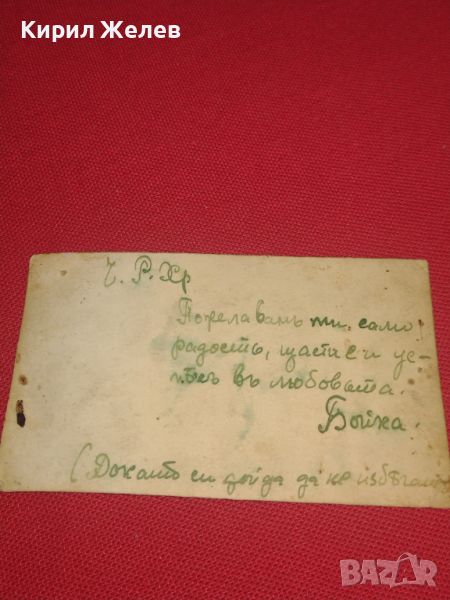 Кирил Желев
Ч. Р. Хр
Пожелавамъ ти само
радость, щастие и ус-
пѣхъ въ любовьта.
Бойка.
(Докато си дойда да не избѣгашъ
BAZAR